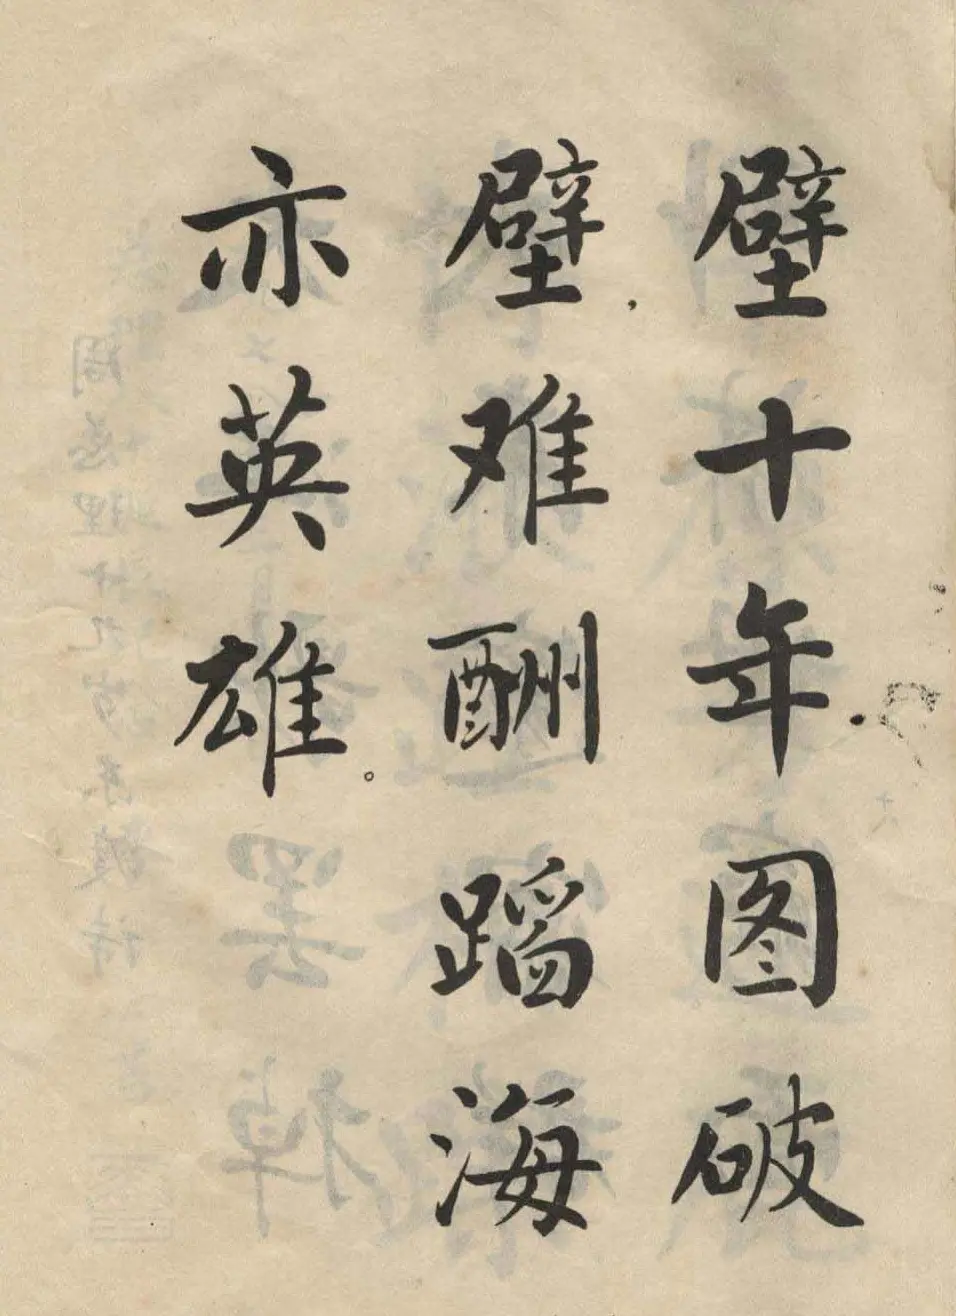 壁十年图破
壁，难酬蹈海
亦英雄。